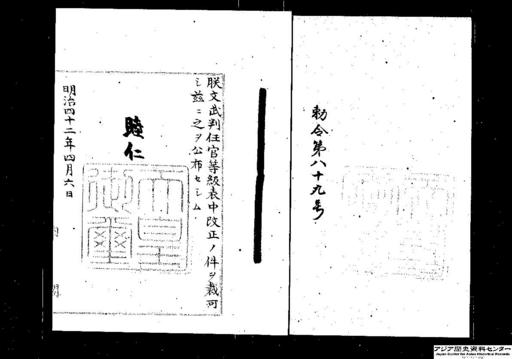 勅令第八十九号
朕文武判任官等級表中改正ノ件ヲ裁可
シ玆ニ之ヲ公布セシム
睦仁
天皇御璽
明治四十二年四月六日
アジア歴史資料センター
Japan Center for Asian Historical Records